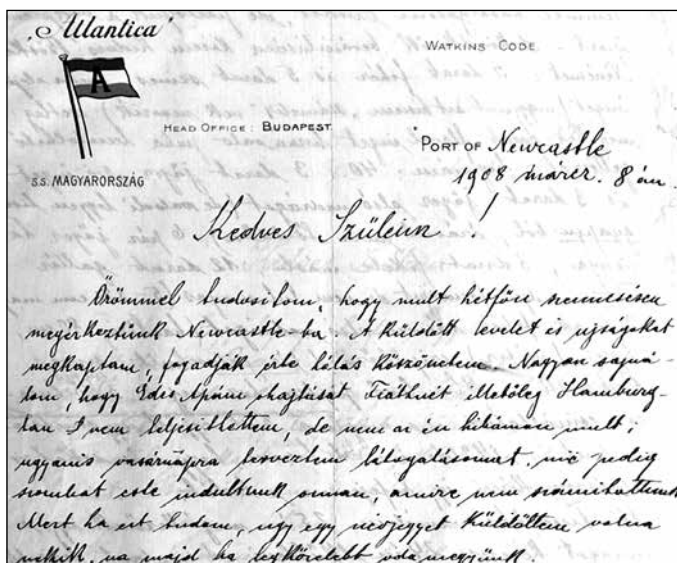 "Atlantica"
WATKINS CODE.
A
HEAD OFFICE: BUDAPEST.
PORT OF Newcastle
S.S. MAGYARORSZÁG
1908 márcz. 8 án.
Kedves Szüleim!
Örömmel tudositom, hogy mult hétfőn szerencsésen
megérkeztünk Newcastle-ba. A küldött levelet és ujságokat
megkaptam, fogadják érte hálás köszönetem. Nagyon sajná-
lom, hogy Édes Apám ohajtását illetőleg Hamburg-
ban nem teljesitettem, de nem az én hibámon mult;
ugyanis vasárnapra terveztem látogatásomat, mi pedig
szombat este indultunk onnan, amire nem számitottunk.
Mert ha ezt tudom, ugy egy névjegyet küldöttem volna
nekik, na majd ha legközelebb oda megyünk.